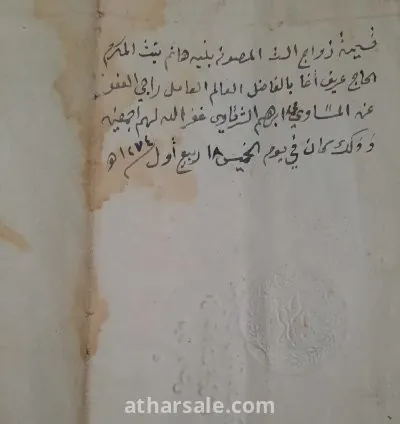 قسيمة زواج الست المصونه بنبه هانم بنت المكرم
الحاج عريف أغا بالفاضل العالم العامل راجي العفو
عن المساوي ابرهيم الشرقاوي غفر الله لهم اجمعين
وذلك كان في يوم الخميس ١٨ ربيع أول ١٢٧٤هـ
atharsale.com